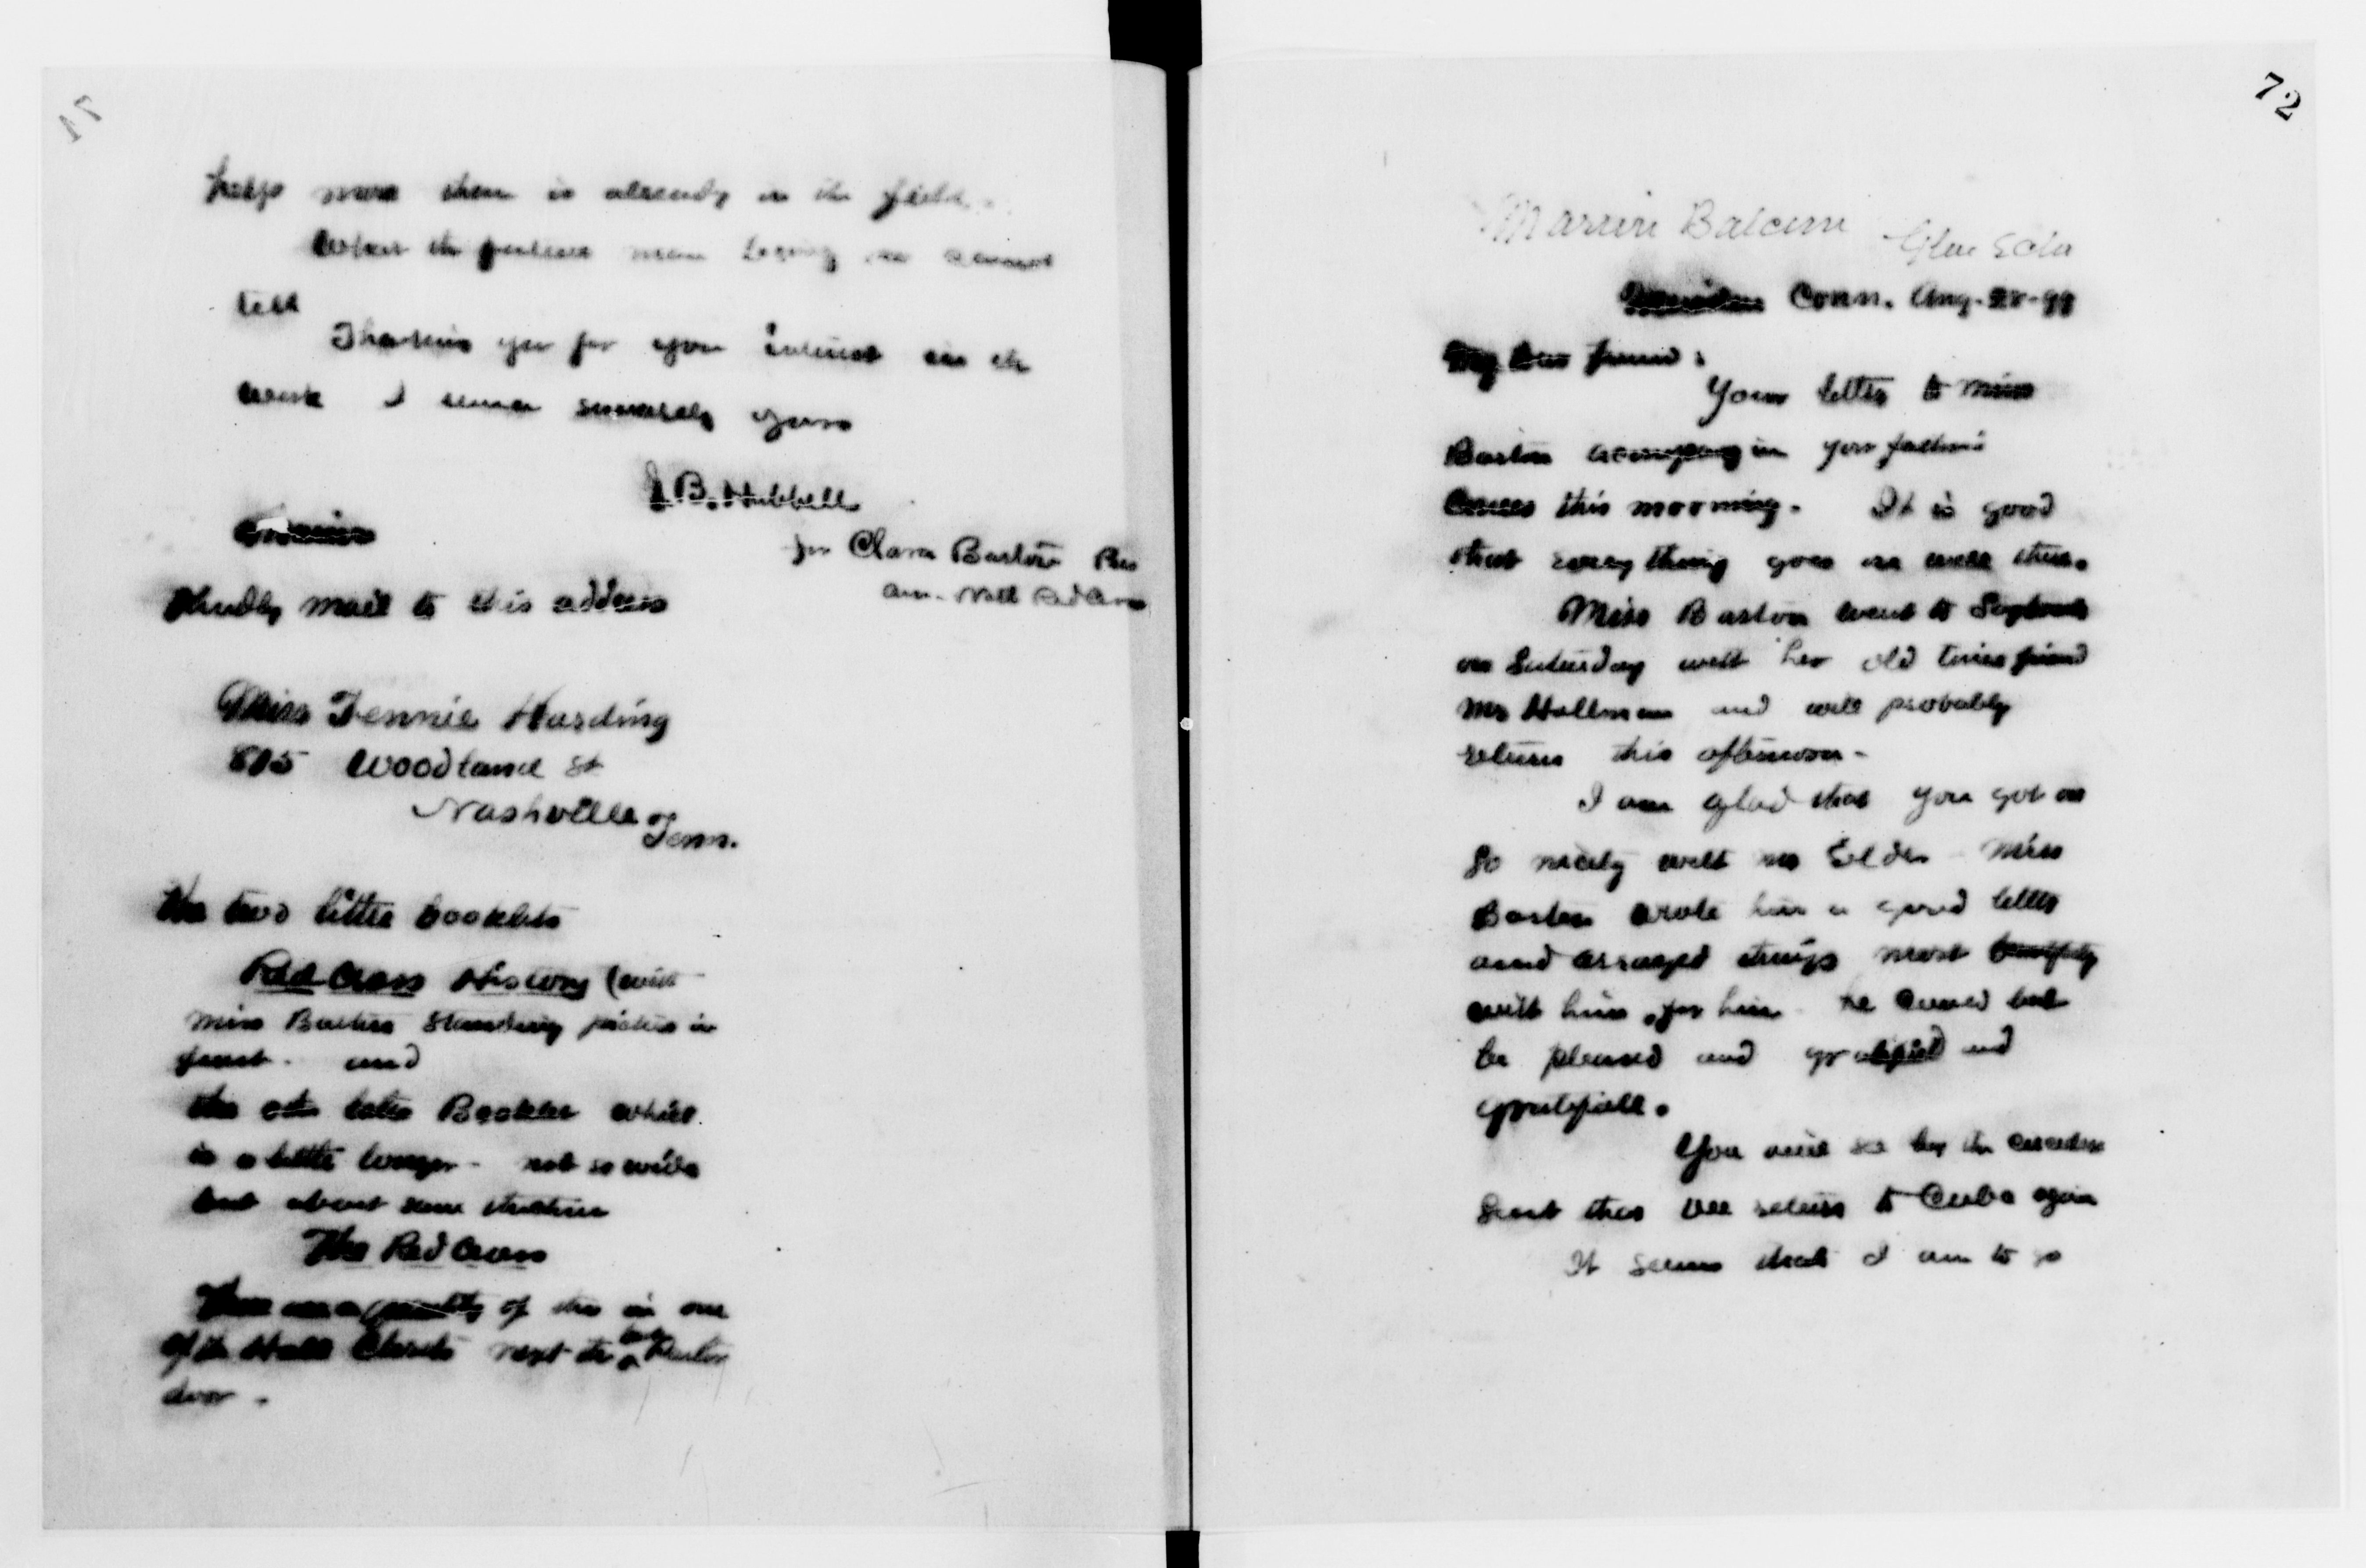 71
help more than is already in the field.
What the future may bring we cannot
tell
Thanking you for your interest in the
work I remain sincerely yours
J.B. Hubbell
for Clara Barton Pres
Am. Natl Red Cross
Kindly mail to this address
Miss Jennie Harding
815 Woodland St
Nashville
Tenn.
The two little booklets
Red Cross History (with
Miss Bartons Standing picture in
front. and
the other little Booklet which
is a little longer - not so wide
but about same thickness
The Red Cross
There are a quantity of these in one
of the Hall Closets next the Parlor
door.
72
Conn. Aug-28-99
My Dear friend:
Your letter to Miss
Barton accompanying your father's
comes this morning. It is good
that every thing goes on well there.
Miss Barton went to
on Saturday with her old time friend
Mr Hallman and will probably
return this afternoon -
I am glad that you got on
so nicely with Mr Elder Miss
Barton wrote him a good letter
and arranged things most beautifully
with him, for him he could but
be pleased and gratified and
You will see by the
sent that we return to Cuba again
It seems that I am to go